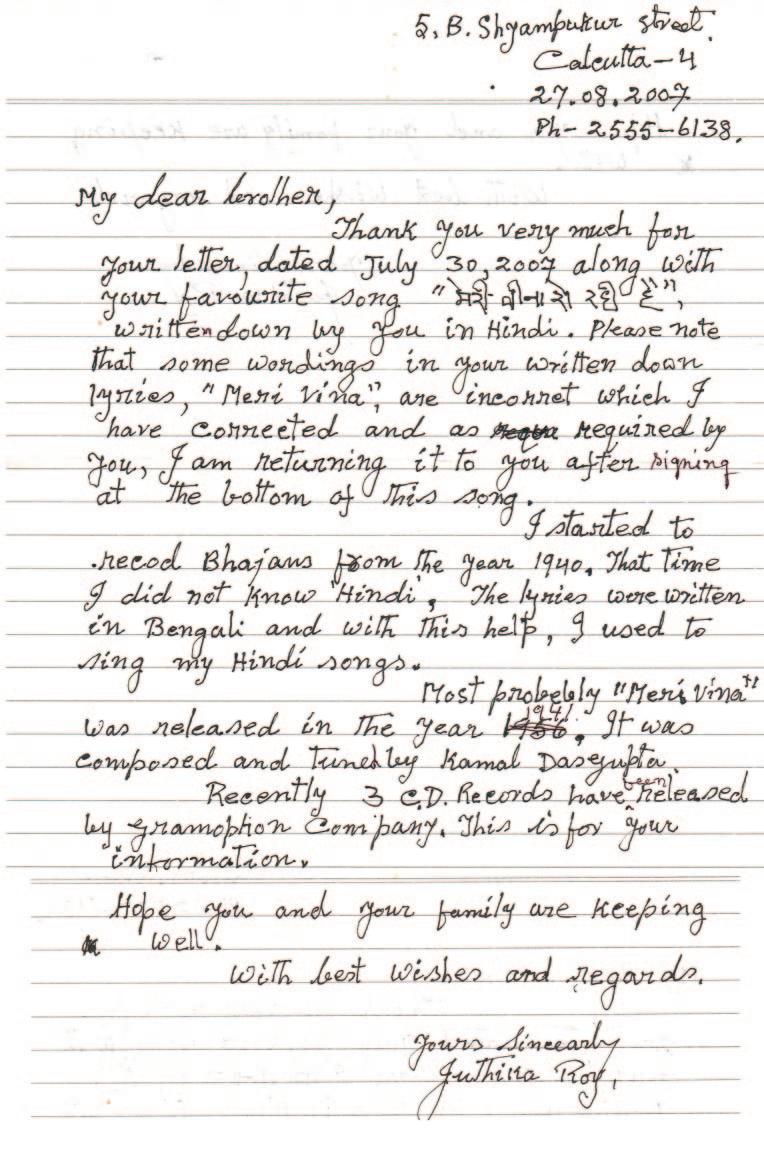 5, B. Shyampukur street.
Calcutta-4
27.08.2007
Ph- 2555-6138.
My dear brother,
Thank you very much for
your letter, dated July 30, 2007 along with
your favourite song "मेरी वीना रो रही है",
written down by you in Hindi. Please note
that some wordings in your written down
lyrics, "Meri Vina", are incorret which I
have corrected and as required by
you, I am returning it to you after signing
at the bottom of this song.
I started to
recod Bhajans from the year 1940. That time
I did not know 'Hindi'. The lyrics were written
in Bengali and with this help, I used to
sing my Hindi songs.
Most probebly "Meri Vina"
was released in the year 1941. It was
composed and tuned by Kamal Dasgupta.
Recently 3 C.D. Records have been released
by gramophon Company. This is for your
information.
Hope you and your family are keeping
well.
With best wishes and regards.
Yours Sincearly
Juthika Roy,